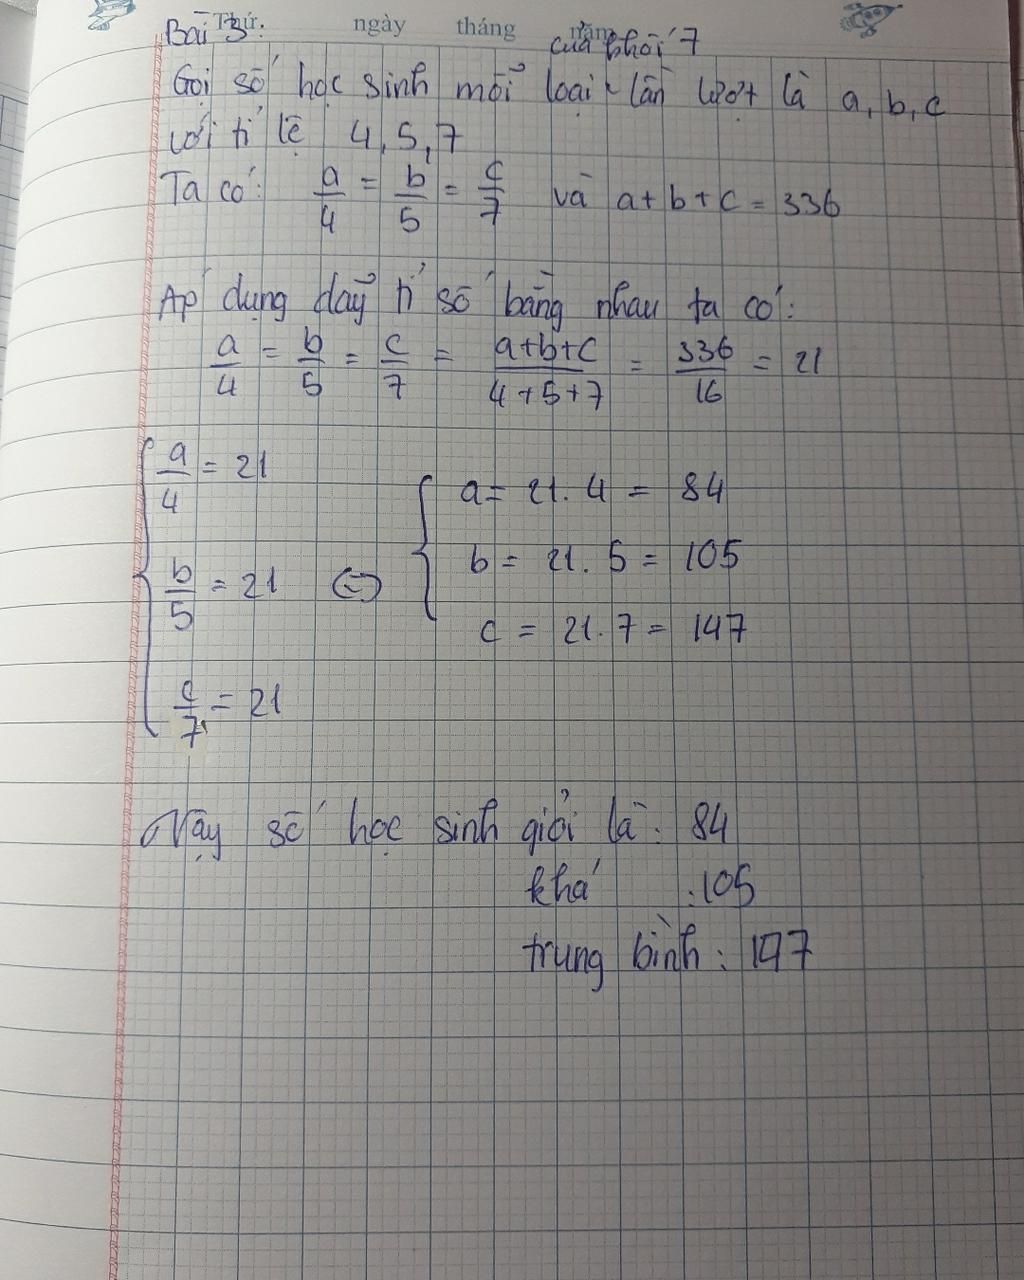 Thứ. ngày tháng năm
Bài 3
của khối 7
Gọi số học sinh mỗi loại lần lượt là a, b, c
với tỉ lệ 4, 5, 7
Ta có: a/4 = b/5 = c/7 và a+b+c = 336
Áp dụng dãy tỉ số bằng nhau ta có:
a/4 = b/5 = c/7 = a+b+c/4+5+7 = 336/16 = 21
a/4 = 21
a = 21.4 = 84
b/5 = 21 ⇔ b = 21.5 = 105
c = 21.7 = 147
c/7 = 21
Vậy số học sinh giỏi là: 84
khá :105
trung bình: 147